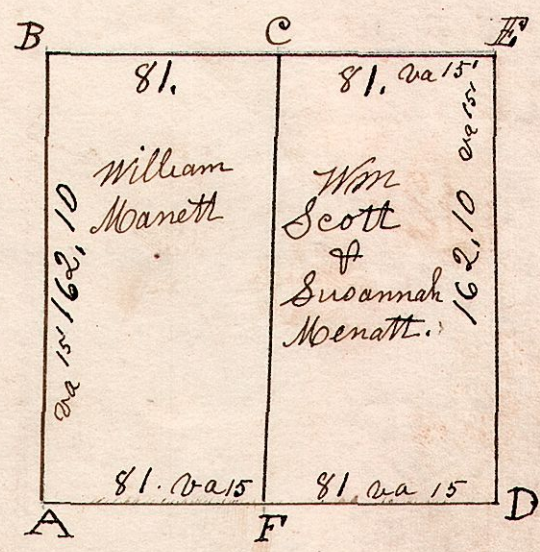 B C E
81. 81. va 15'
va 15' 162,10
William
Manett
Wm
Scott
&
Susannah
Menatt.
162,10 va 15'
81. va 15 81 va 15
A F D